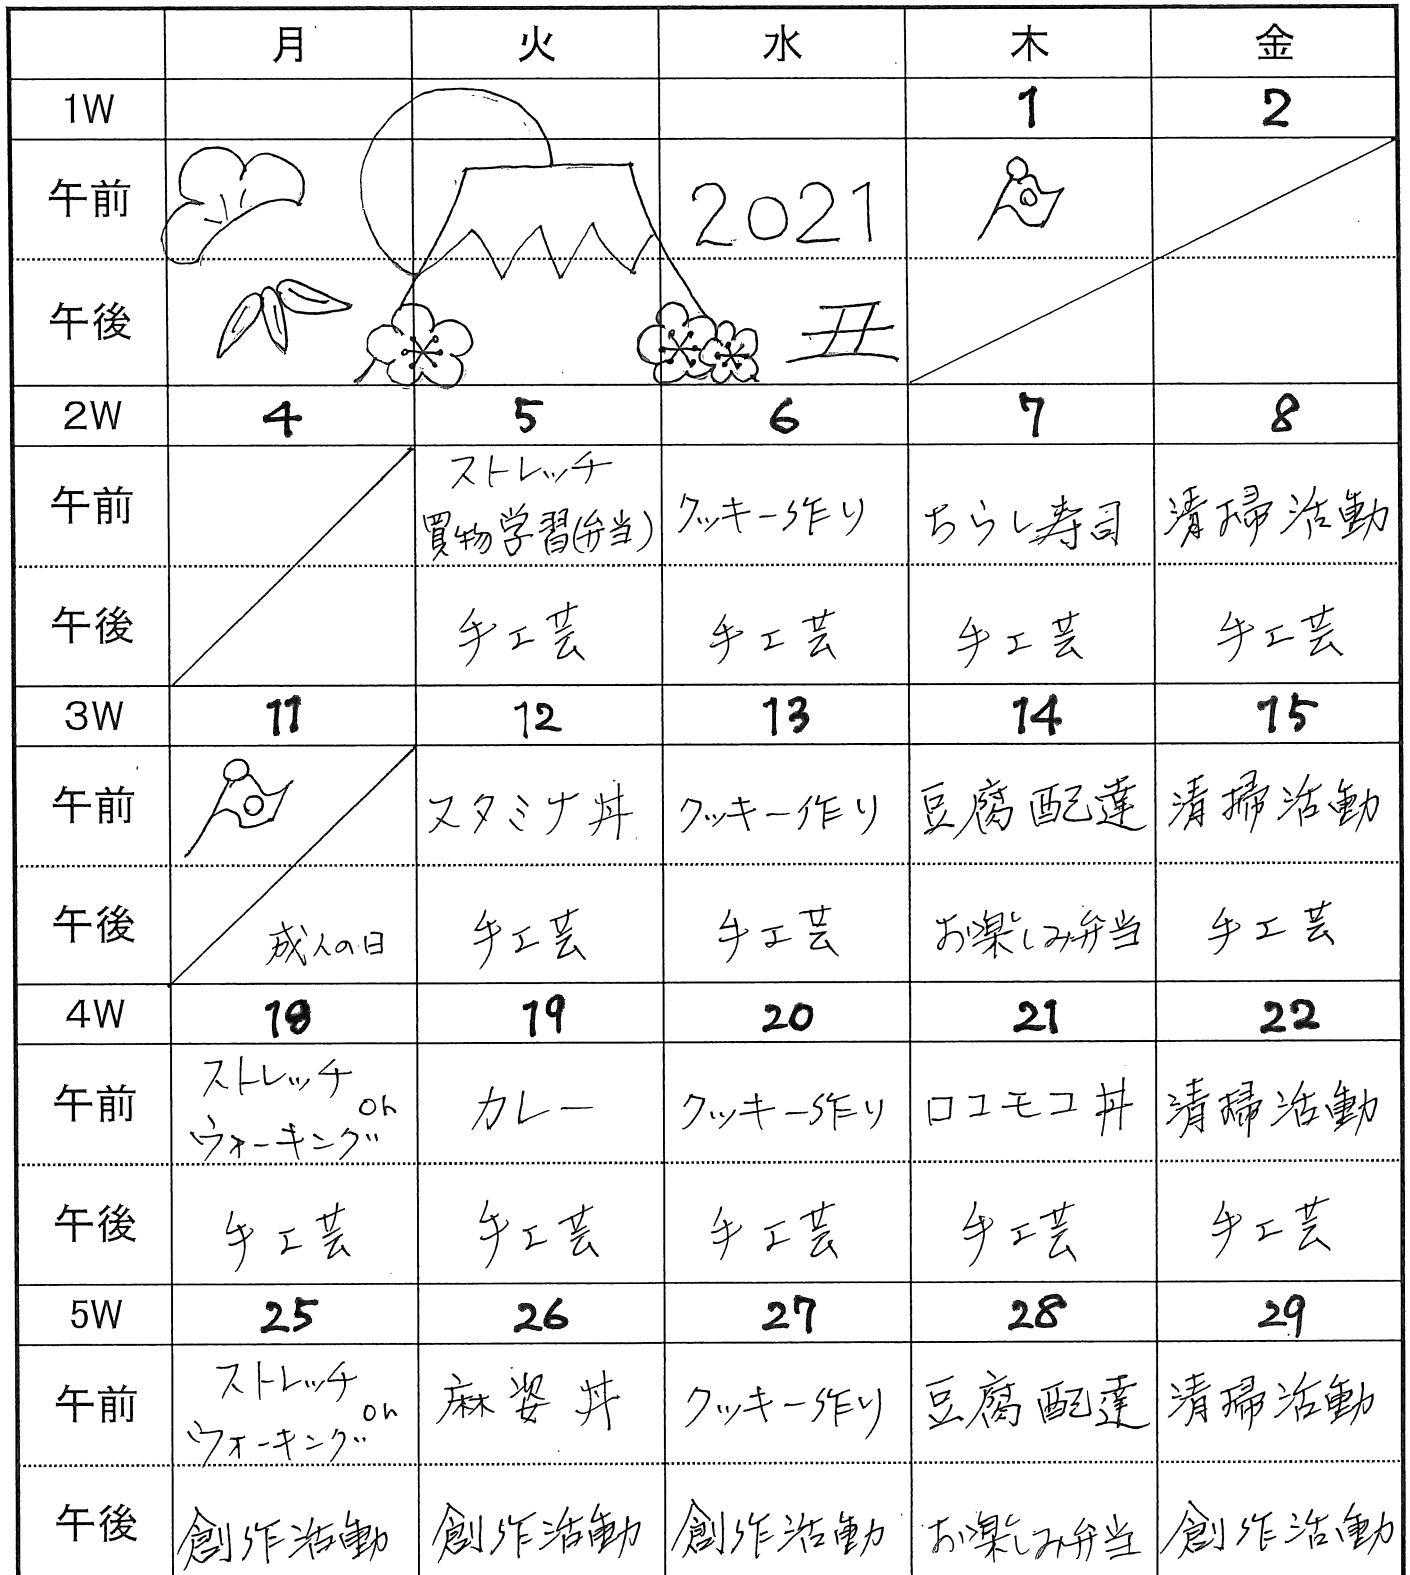 月 火 水 木 金
1W 1 2
午前 2021
午後 丑
2W 4 5 6 7 8
午前 ストレッチ 買物学習(弁当) クッキー作り ちらし寿司 清掃活動
午後 手工芸 手工芸 手工芸 手工芸
3W 11 12 13 14 15
午前 スタミナ丼 クッキー作り 豆腐配達 清掃活動
午後 成人の日 手工芸 手工芸 お楽しみ弁当 手工芸
4W 18 19 20 21 22
午前 ストレッチ or ウォーキング カレー クッキー作り ロコモコ丼 清掃活動
午後 手工芸 手工芸 手工芸 手工芸 手工芸
5W 25 26 27 28 29
午前 ストレッチ or ウォーキング 麻婆丼 クッキー作り 豆腐配達 清掃活動
午後 創作活動 創作活動 創作活動 お楽しみ弁当 創作活動